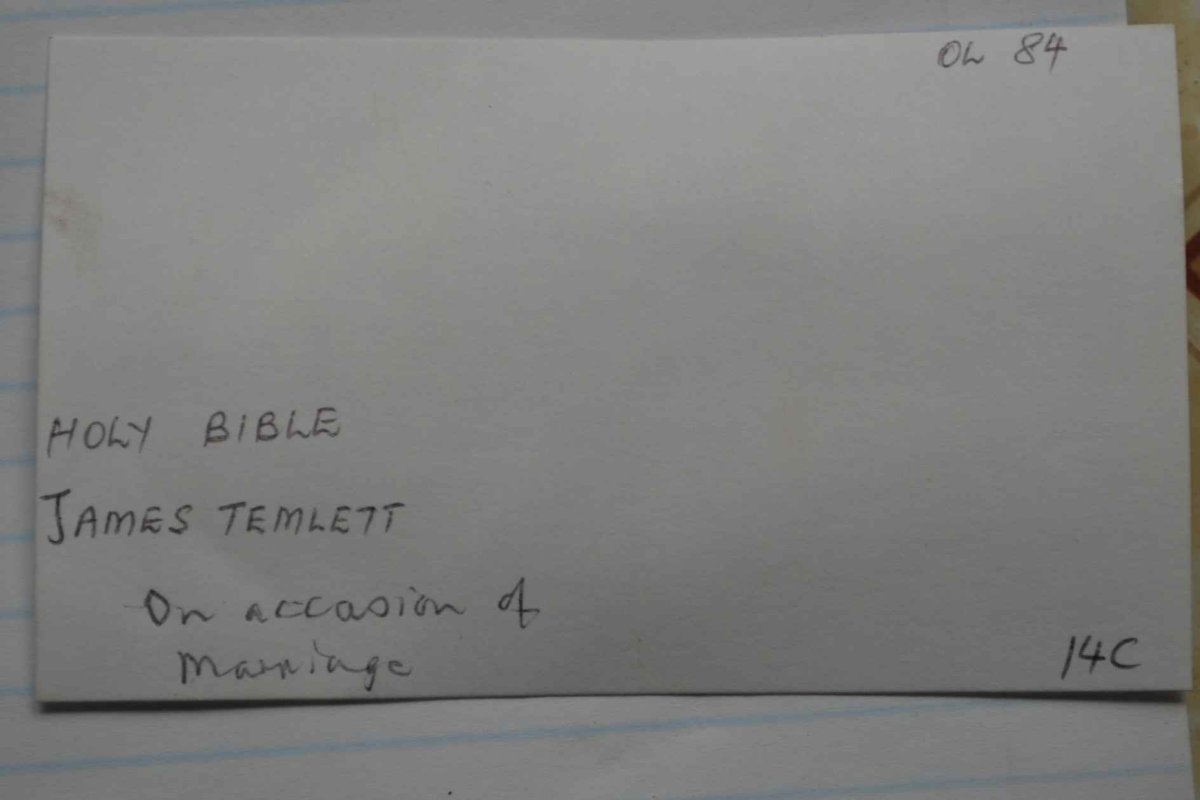 OL 84
HOLY BIBLE
JAMES TEMLETT
On accasion of
Marriage
14C